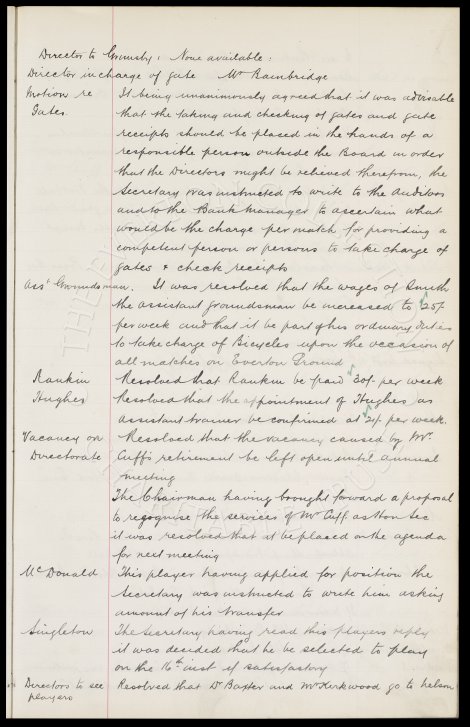 Director to Grimsby: None available:
Director in charge of gate Mr Bainbridge
Motion re It being unanimously agreed that it was advisable
Gates. that the taking and checking of gates and gate
receipts should be placed in the hands of a
responsible person outside the Board in order
that the Directors might be relieved therefrom, the
Secretary was instructed to write to the Auditors
and to the Bank Manager to ascertain what
would be the charge per match for providing a
competent person or persons to take charge of
gates & check receipts
Asst Groundsman. It was resolved that the wages of Smith
the assistant groundsman be increased to 25/-
per week and that it be part of his ordinary duties
to take charge of Bicycles upon the occasion of
all matches on Everton Ground
Rankin Resolved that Rankin be paid 30/- per week
Hughes Resolved that the appointment of Hughes as
assistant trainer be confirmed at 24/- per week.
Vacancy on Resolved that the vacancy caused by Mr.
Directorate Cuff's retirement be left open until annual
meeting
The Chairman having brought forward a proposal
to recognise the services of Mr Cuff. as Hon Sec
it was resolved that it be placed on the agenda
for next meeting
McDonald This player having applied for position the
Secretary was instructed to write him asking
amount of his transfer
Singleton The Secretary having read this players reply
it was decided that he be selected to play
on the 16th inst if satisfactory
Directors to see Resolved that Dr Baxter and Mr Kirkwood go to Nelson
players